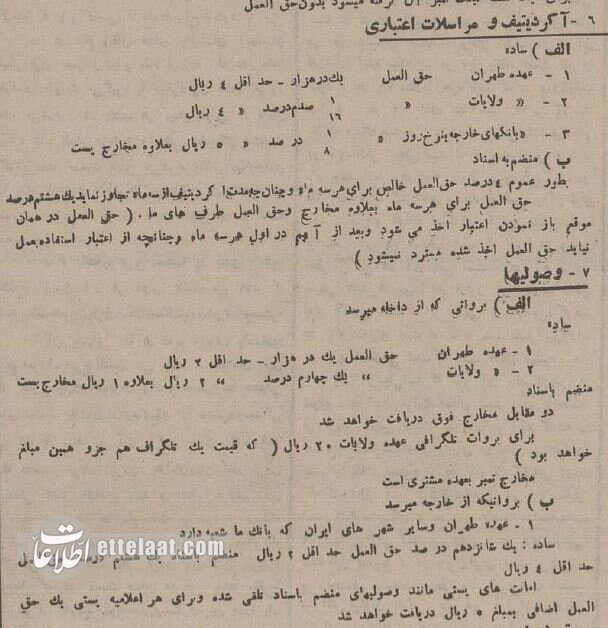 حق العمل
۶ - آکردیتیف و مراسلات اعتباری
الف) ساده
۱ - عهده طهران حق العمل یك در هزار - حد اقل ٤ ریال
۲ - « ولایات « ۱/۱۶ صدم درصد « ٤ ریال
۳ - « بانکهای خارجه بنرخ روز « ۱/۸ در صد « ۵ ریال بعلاوه مخارج پست
ب) منضم به اسناد
بطور عموم ٤ درصد حق العمل خالص برای هر سه ماه و چنانچه مدت اکردیتیف از سه ماه تجاوز نماید یك هشتم درصد
حق العمل برای هر سه ماه بعلاوه مخارج وحق العمل طرف های ما . ( حق العمل در همان
موقع باز نمودن اعتبار اخذ می شود وبعد از آنهم در اول هر سه ماه وچنانچه از اعتبار استفاده بعمل
نیاید حق العمل اخذ شده مسترد نمیشود )
۷ - وصولیها
الف) برواتی که از داخله میرسد
ساده
۱ - عهده طهران حق العمل یك در هزار - حد اقل ۳ ریال
۲ - « ولایات « یك چهارم درصد « ۲ ریال بعلاوه ۱ ریال مخارج پست
منضم باسناد
دو مقابل مخارج فوق دریافت خواهد شد
برای بروات تلگرافی عهده ولایات ۲۰ ریال ( که قیمت یك تلگراف هم جزو همین مبلغ
خواهد بود )
مخارج تمبر بعهده مشتری است
ب) برواتیکه از خارجه میرسد
۱ - عهده طهران وسایر شهر های ایران که بانك ما شعبه دارد
ساده : یك شانزدهم در صد حق العمل حد اقل ۲ ریال منضم باسناد یك هشتم در
حد اقل ٤ ریال
امانت های پستی مانند وصولیهای منضم باسناد تلقی شده وبرای هر اعلامیه پستی یك حق
العمل اضافی بمبلغ ۵ ریال دریافت خواهد شد
اطلاعات ettelaat.com